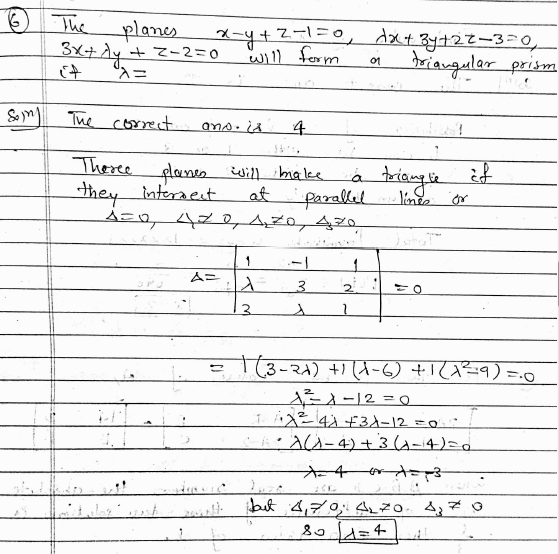 (6) The planes x-y+z-1=0, λx+3y+2z-3=0,
3x+λy+z-2=0 will form a triangular prism
if λ=
Soln) The correct ans. is 4
Theree planes will make a triangle if
they intersect at parallel lines or
Δ=0, Δ₁≠0, Δ₂≠0, Δ₃≠0
Δ= | 1 -1 1 |
| λ 3 2 | = 0
| 3 λ 1 |
= 1(3-2λ) +1(λ-6) +1(λ²-9) = 0
λ²-λ-12 = 0
λ²-4λ+3λ-12 = 0
λ(λ-4)+3(λ-4)=0
λ=4 or λ=-3
but Δ₁≠0, Δ₂≠0 Δ₃≠0
so λ=4